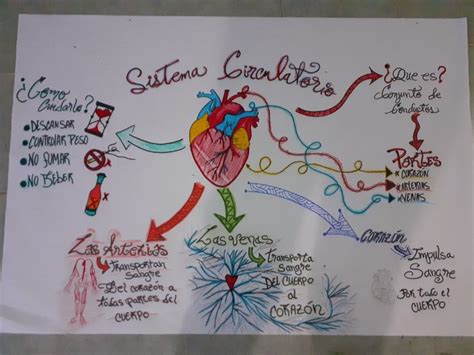 Sistema Circulatorio
¿Como
Cuidarlo?
DESCANSAR
CONTROLAR PESO
NO FUMAR
NO BEBER
¿Que es?
Conjunto de
Conductos
PARTES
CORAZÓN
ARTERIAS
VENAS
Las Arterias
Transportan
Sangre
Del corazón a
todas partes del
CUERPO
Las Venas
Transporta
Sangre
DEL CUERPO
al
CORAZÓN
CORAZÓN
Impulsa
Sangre
Por todo el
CUERPO